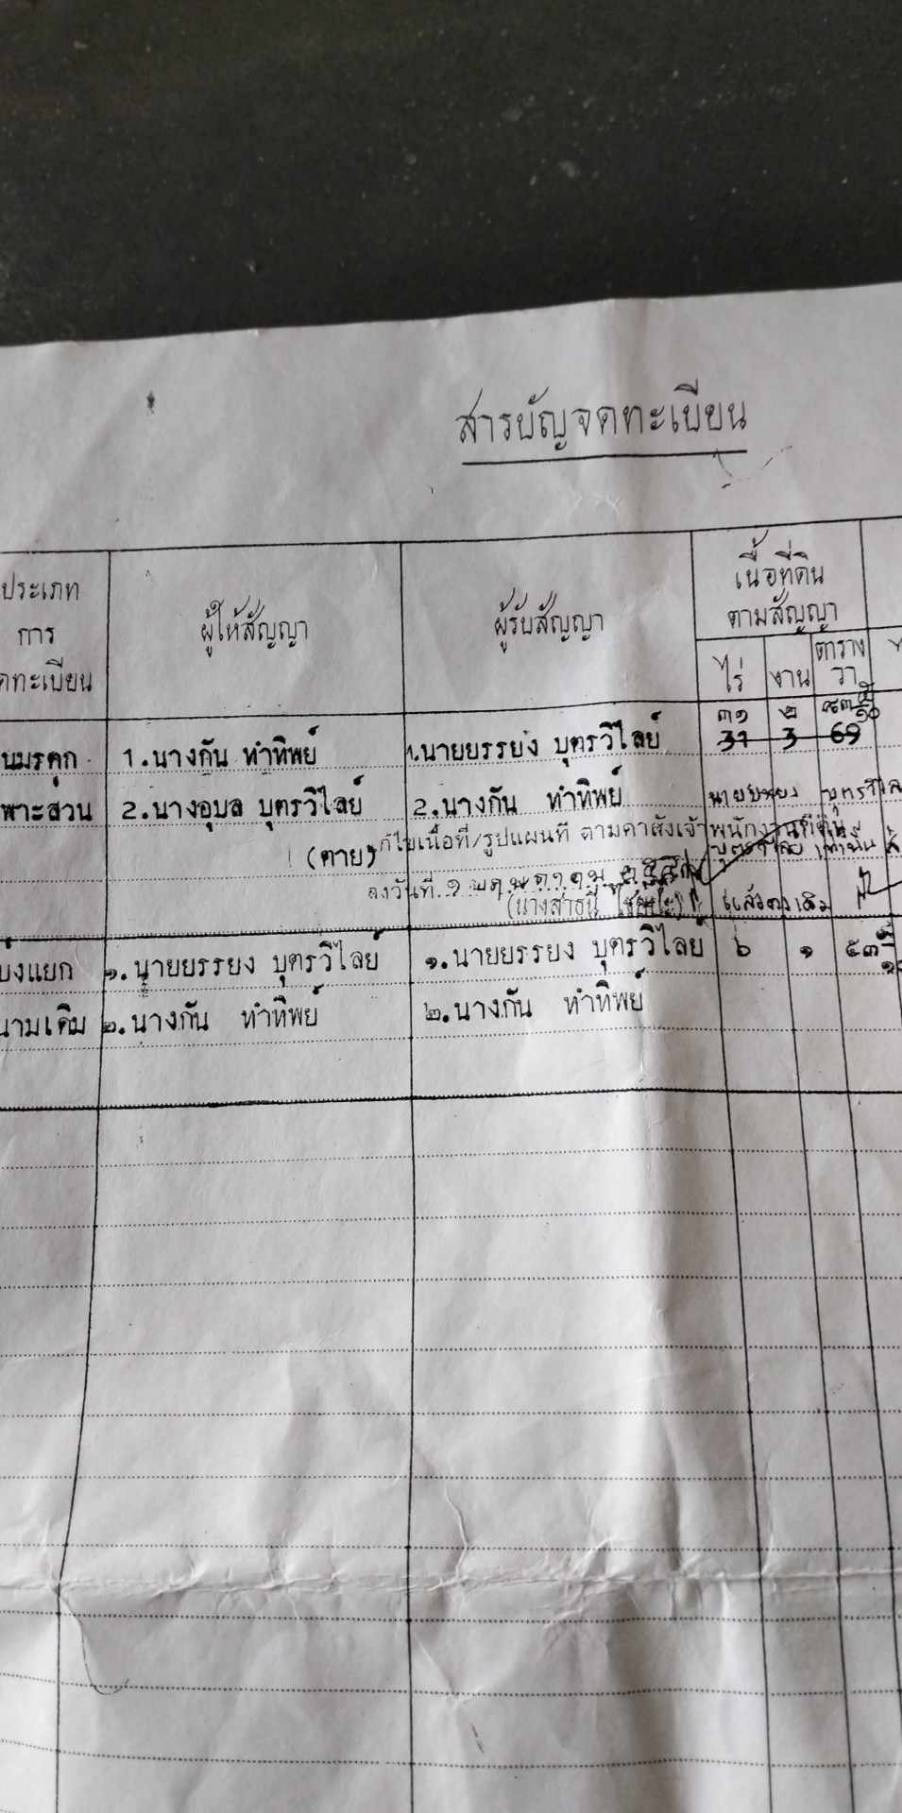 สารบัญจดทะเบียน
ประเภท
การ
ดทะเบียน
ผู้ให้สัญญา
ผู้รับสัญญา
เนื้อที่ดิน
ตามสัญญา
ไร่ งาน ตาราง
วา
๓๑ ๒
นมรดก 1.นางกัน ทำทิพย์ 1.นายยรรยง บุตรวิไลย์ 31 3 69
พาะส่วน 2.นางอุบล บุตรวิไลย์ 2.นางกัน ทำทิพย์
(ตาย) แก้ไขเนื้อที่/รูปแผนที่ ตามคำสั่งเจ้าพนักงานที่ดิน
ลงวันที่ ๑ พฤษภาคม
แล้วคงเดิม
บ่งแยก ๑.นายยรรยง บุตรวิไลย์ ๑.นายยรรยง บุตรวิไลย์ ๖ ๑
นามเดิม ๒.นางกัน ทำทิพย์ ๒.นางกัน ทำทิพย์